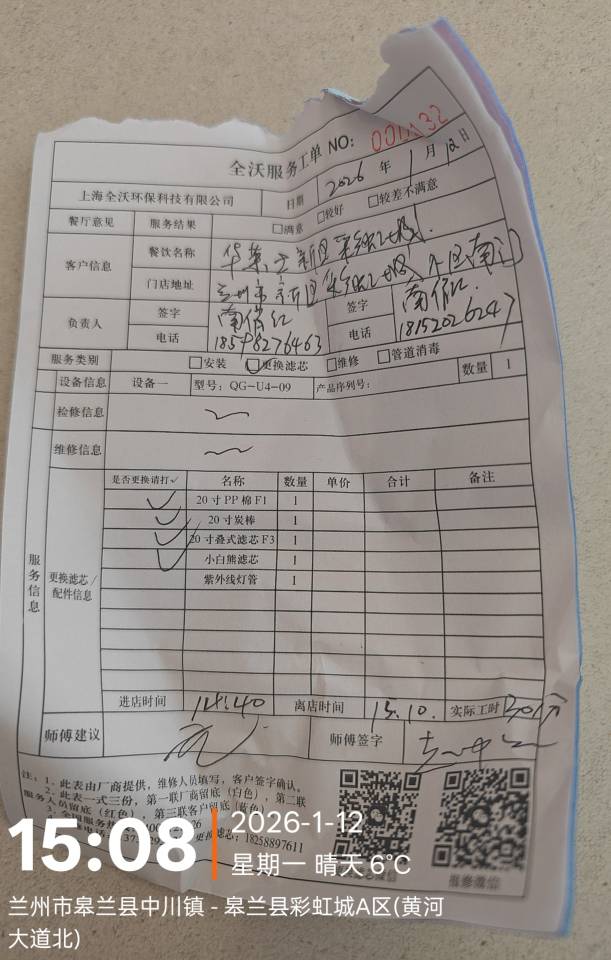 全沃服务工单 NO: 001132
上海全沃环保科技有限公司 日期 2026 年 1 月 12 日
餐厅意见 服务结果 □满意 □较好 □较差不满意
客户信息 餐饮名称 华莱士新区彩虹城
门店地址 兰州市新区彩虹城A区南门
负责人 签字 签字
电话 18598276463 电话 18152026247
服务类别 □安装 □更换滤芯 □维修 □管道消毒
设备信息 设备一 型号: QG-U4-09 产品序列号: 数量 1
检修信息
维修信息
服务信息 更换滤芯/配件信息
是否更换请打✓ 名称 数量 单价 合计 备注
✓ 20寸PP棉F1 1
✓ 20寸炭棒 1
✓ 20寸叠式滤芯F3 1
✓ 小白熊滤芯 1
紫外线灯管 1
进店时间 14:40 离店时间 15.10. 实际工时 30分
师傅建议 无 师傅签字
注: 1、此表由厂商提供, 维修人员填写, 客户签字确认。
2、此表一式三份, 第一联厂商留底(白色), 第二联
服务人员留底(红色), 第三联客户留底(蓝色)
更换滤芯: 18258897611
报修微信
15:08
2026-1-12
星期一 晴天 6℃
兰州市皋兰县中川镇 - 皋兰县彩虹城A区(黄河
大道北)